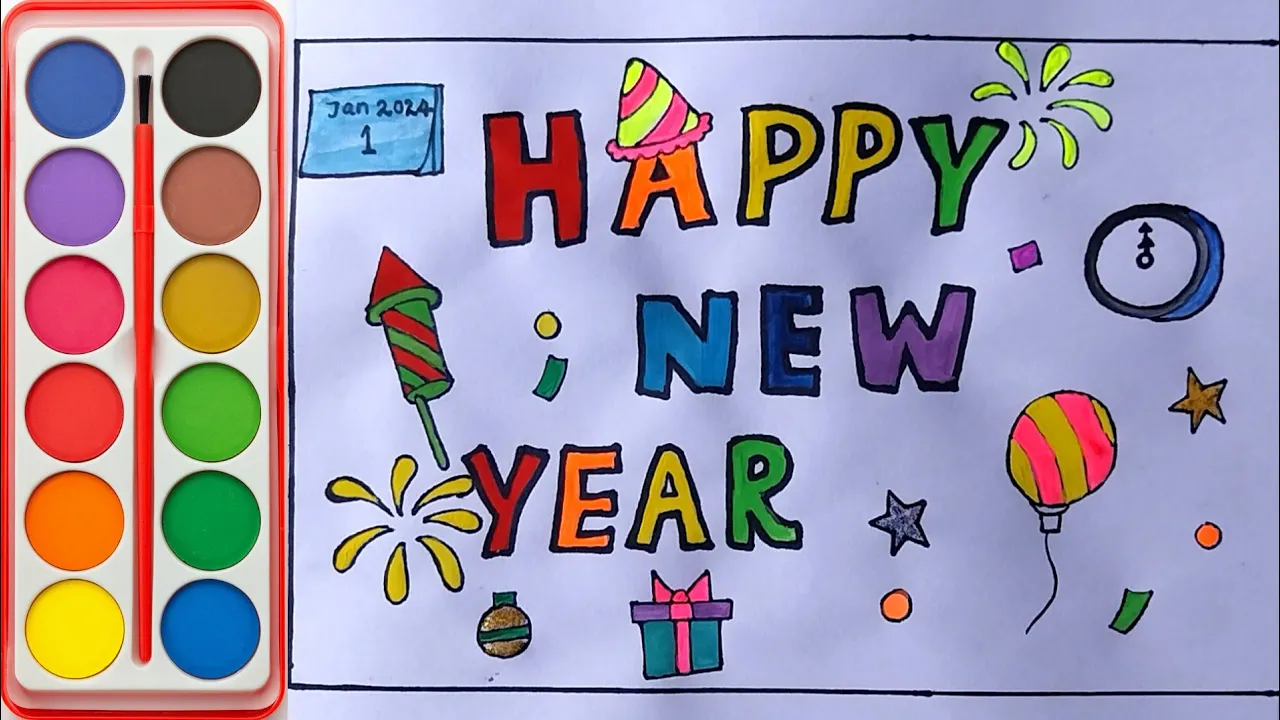 Jan 2024
1
HAPPY
NEW
YEAR